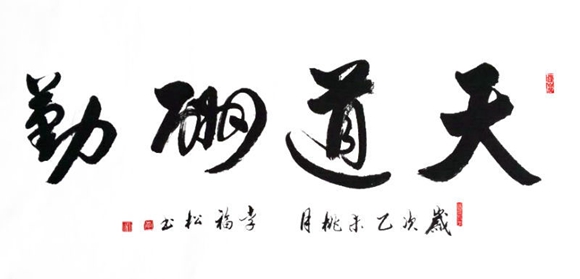 天道酬勤
歲次乙未桃月 李福松书